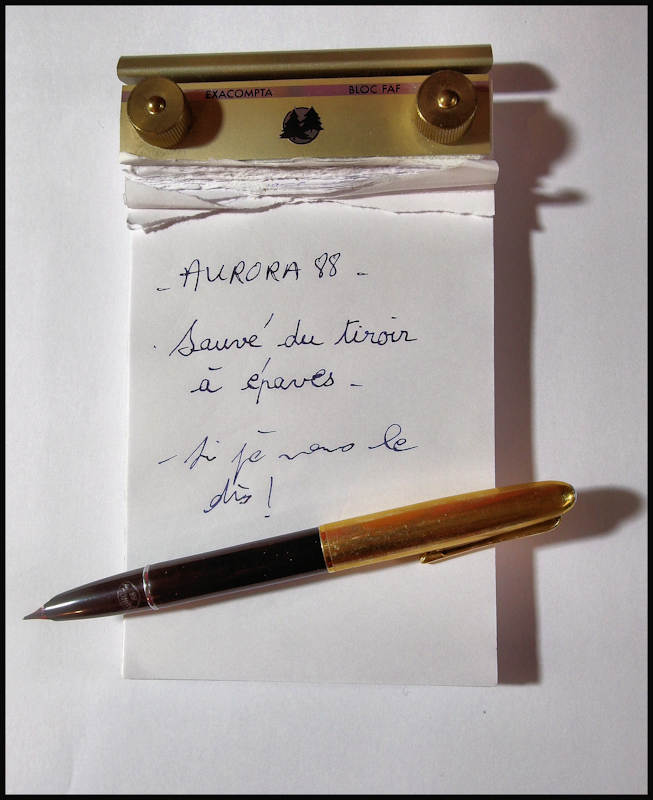 EXACOMPTA BLOC FAF
- AURORA 88 -
. Sauvé du tiroir
à épaves -
- Si je vous le
dis !